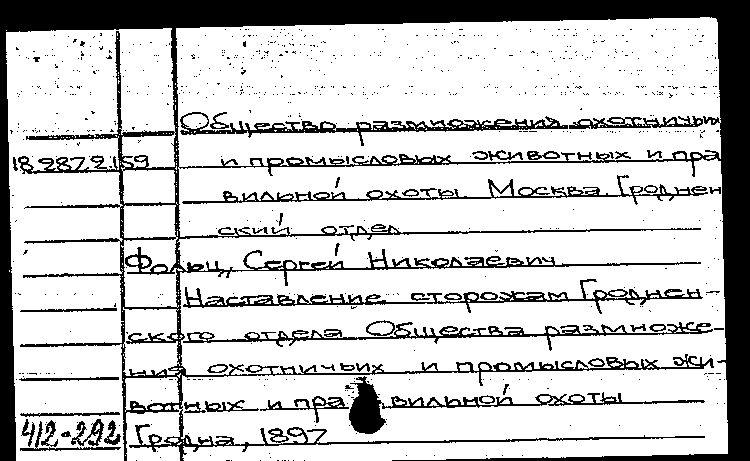 Общество размножения охотничьих
18.287.2.159 и промысловых животных и пра
вильной охоты. Москва. Гроднен
ский отдел.
Фольц, Сергей Николаевич.
Наставление сторожам Гроднен-
ского отдела Общества размноже-
ния охотничьих и промысловых жи-
вотных и пра вильной охоты
412-292 Гродна, 1897